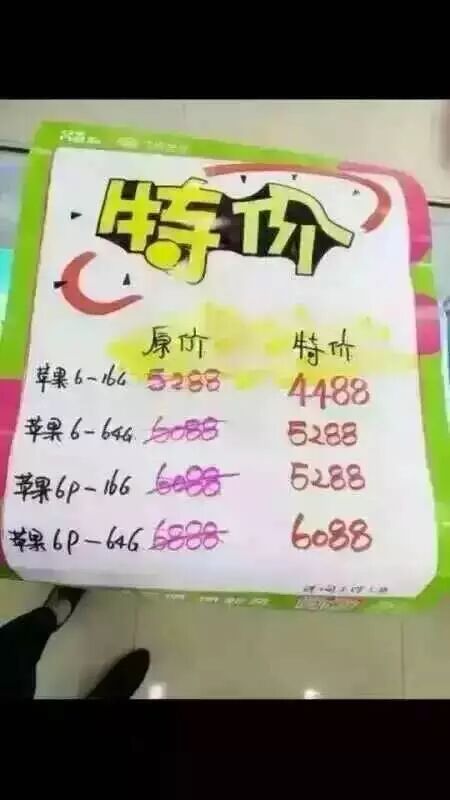 特价
原价 特价
苹果6-16G 5288 4488
苹果6-64G 6088 5288
苹果6P-16G 6088 5288
苹果6P-64G 6888 6088